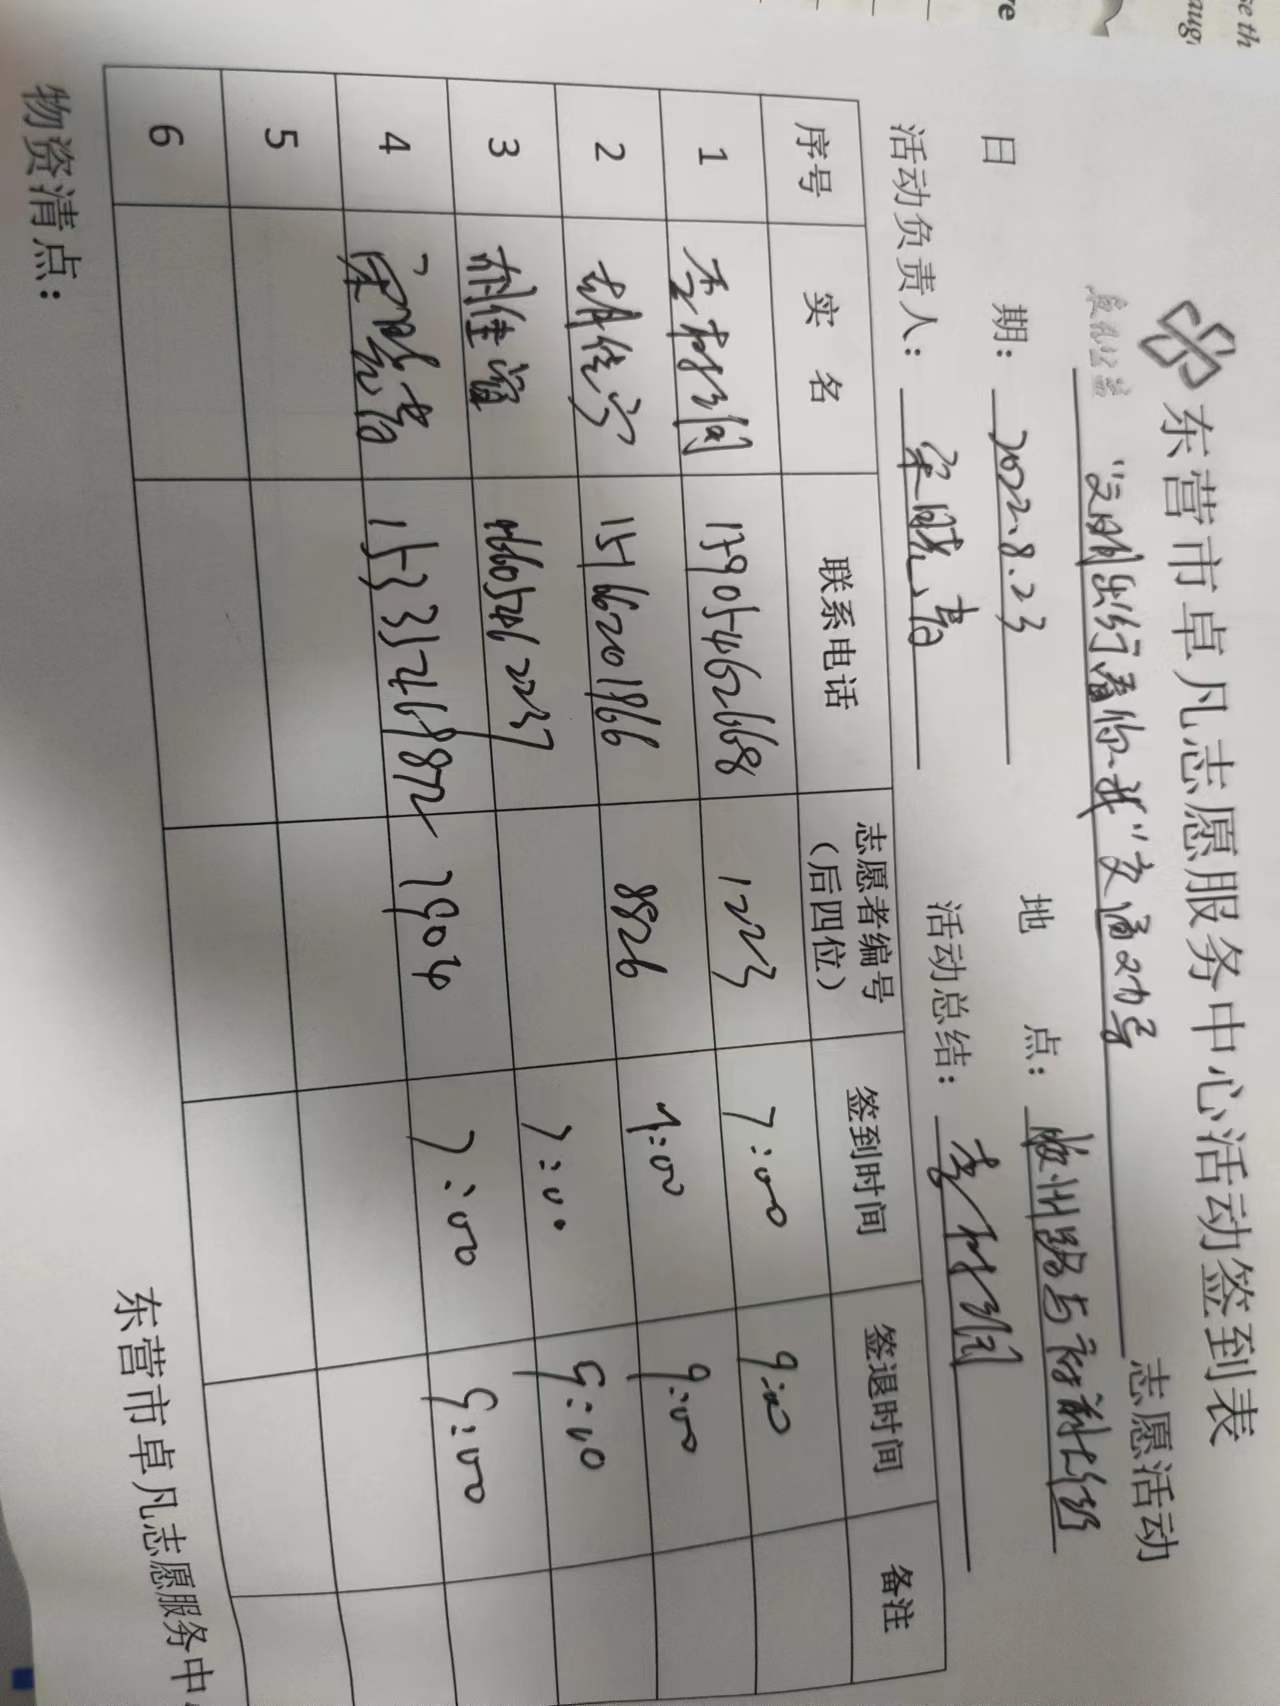 东营市卓凡志愿服务中心活动签到表
"文明出行看你我"交通劝导 志愿活动
日 期： 2022.8.23 地 点： 胶州路与府前大街
活动负责人： 宋晓青 活动总结： 李树润
序号 实 名 联系电话 志愿者编号（后四位） 签到时间 签退时间 备注
1 李树润 13905462668 1223 7:00 9:00
2 胡佳宁 15166201966 8826 7:00 9:00
3 佳谊 7:00 9:00
4 宋晓青 15333546872 7904 7:00 9:00
5
6
物资清点：
东营市卓凡志愿服务中